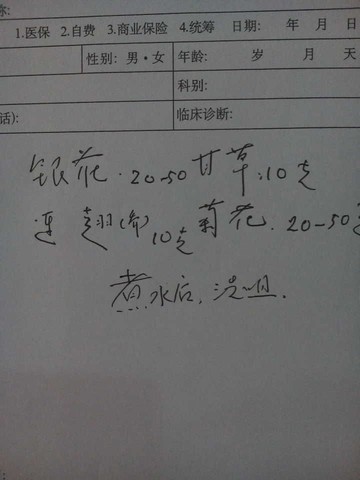 称:
1.医保 2.自费 3.商业保险 4.统筹 日期: 年 月 日
性别: 男·女 年龄: 岁 月 天
科别:
话): 临床诊断:
银花.20-50 甘草:10克
连翘 10克 菊花.20-50克
煮水后,